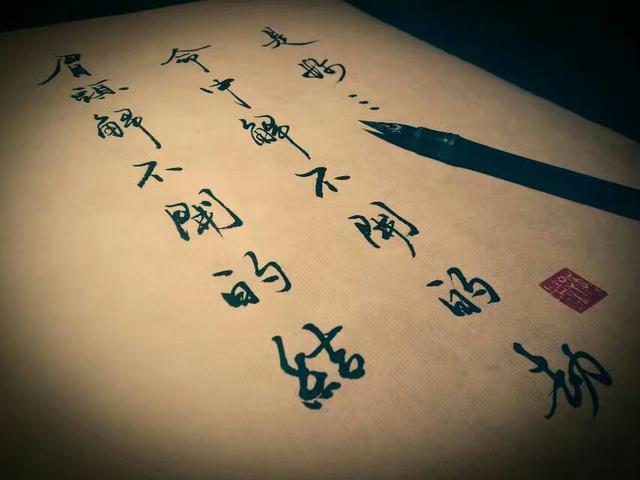 眉頭解不開的結
命中解不開的劫
是妳…